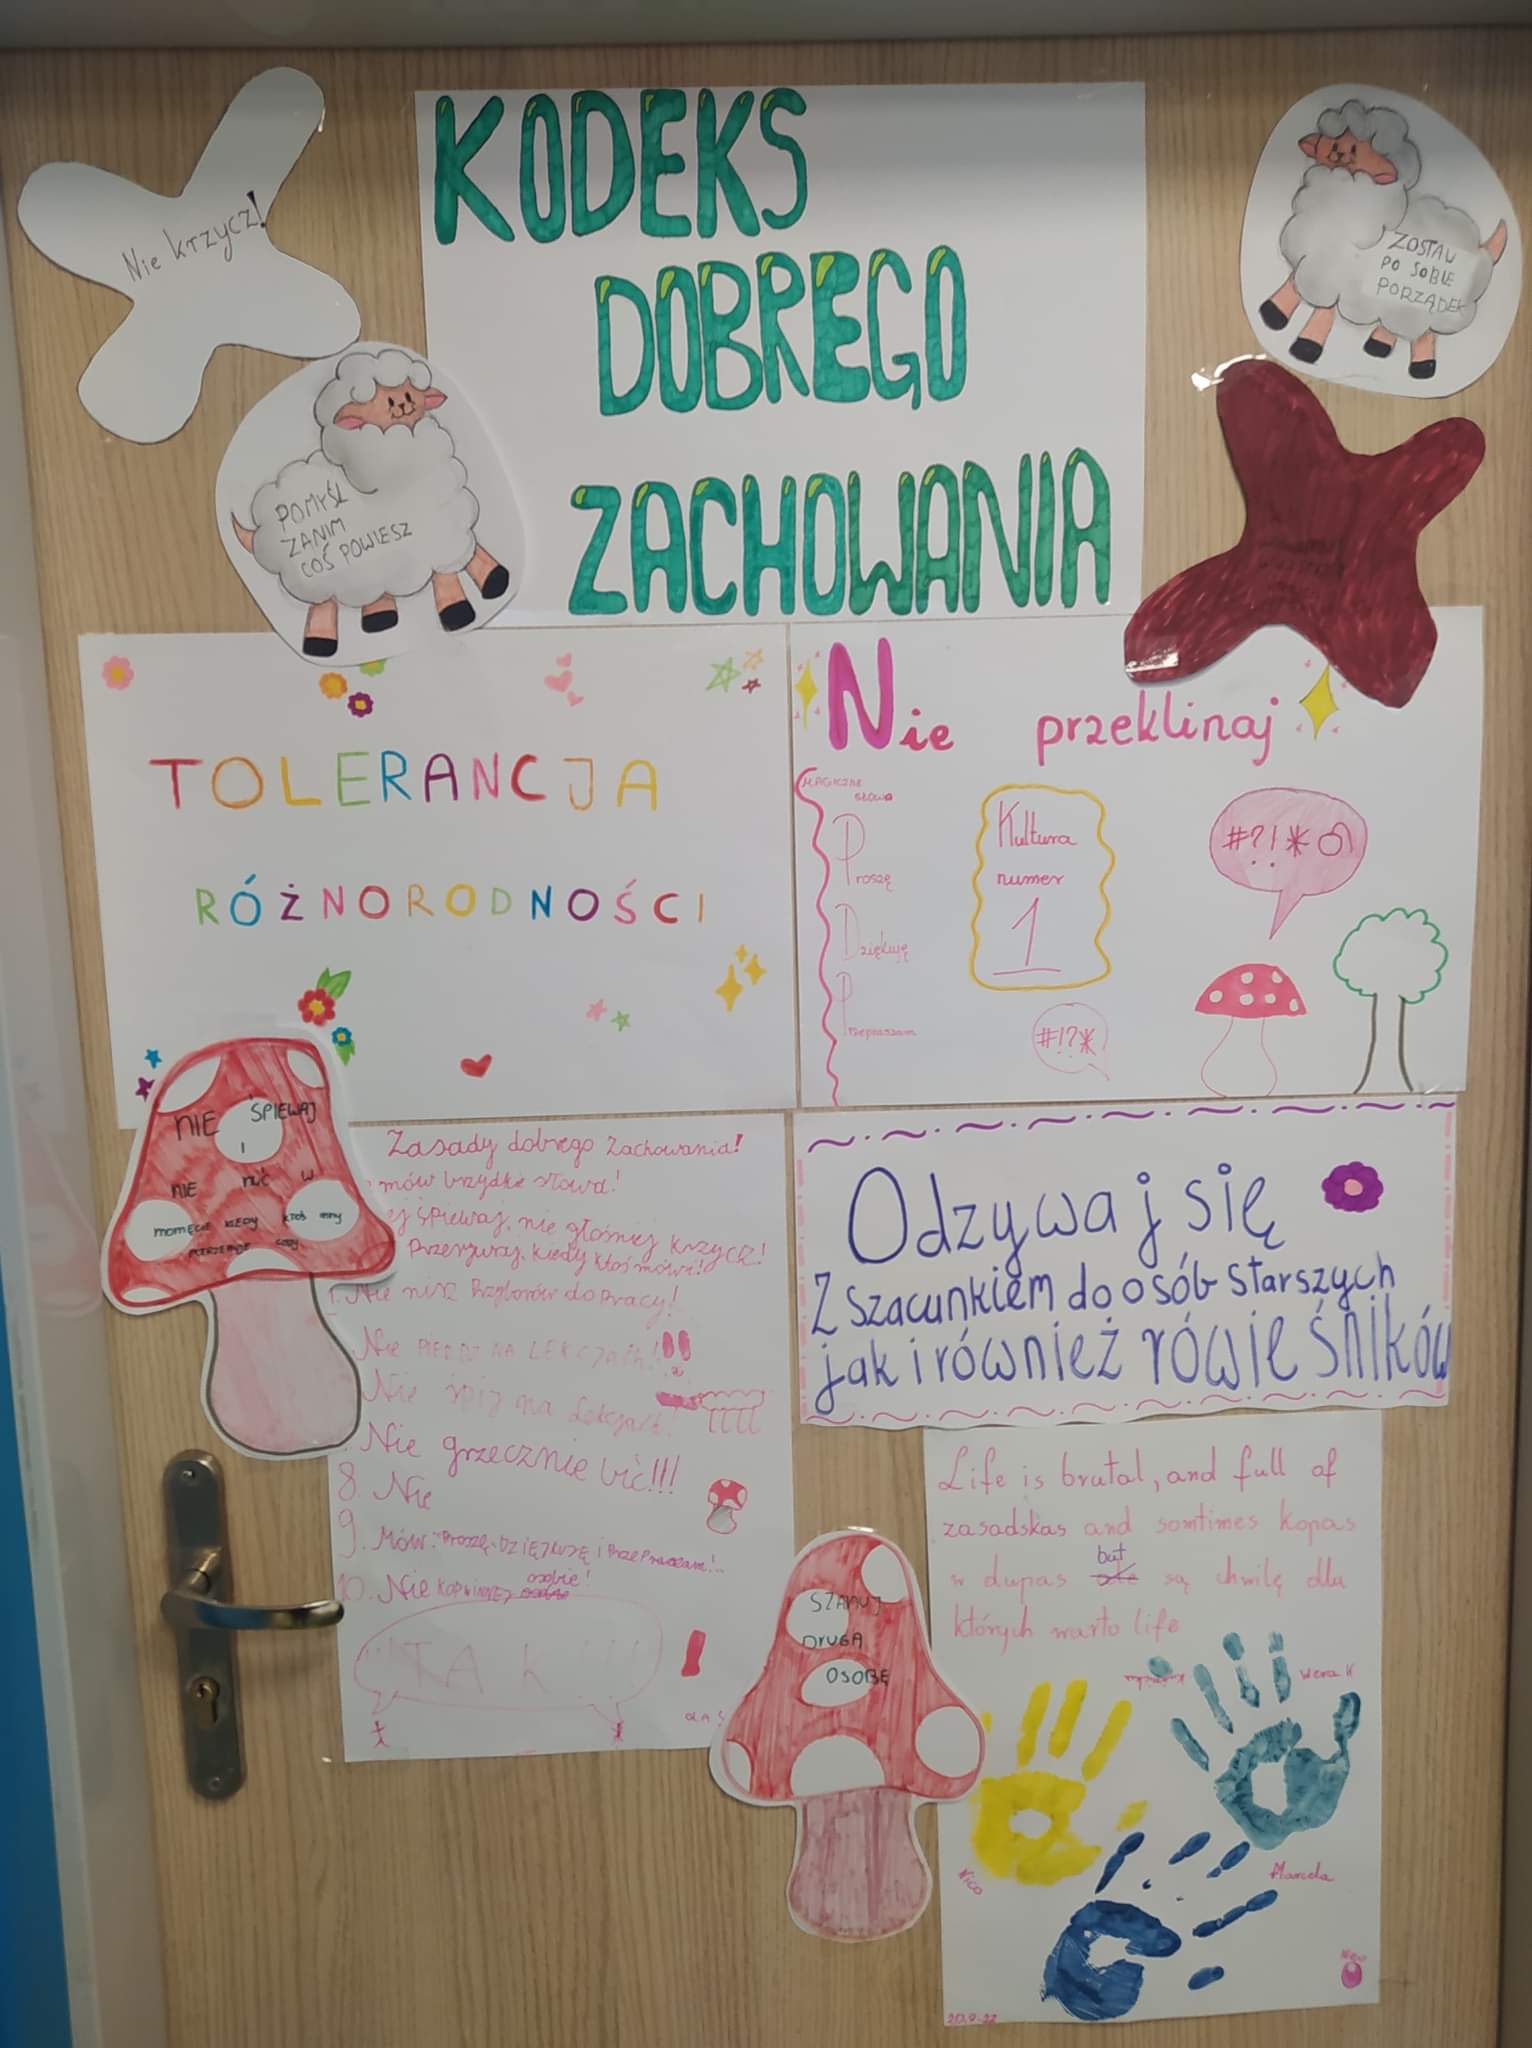 KODEKS
DOBREGO
ZACHOWANIA
Nie krzycz!
ZOSTAW
PO SOBIE
PORZĄDEK
POMYŚL
ZANIM
COŚ POWIESZ
TOLERANCJA
RÓŻNORODNOŚCI
Nie przeklinaj
MAGICZNE
słowa
Proszę
Dziękuję
Przepraszam
Kultura
numer
1
#?!*
#!?*
NIE ŚPIEWAJ
I
NIE NUĆ W
MOMĘCIE KIEDY KTOŚ
Zasady dobrego Zachowania!
mów brzydkie słowa!
ej śpiewaj, nie głośniej krzycz!
Przerywaj, kiedy ktoś mówi!
Nie nisz Przyborów do pracy!
Nie PIERDZ NA LEKCJACH!
Nie śpij na Lekcjach!
Nie grzecznie bić!!!
8. Nie
9. Mów: Proszę, DZIĘKUJĘ i PrzePraszam!..
10. Nie osobie!
TAK!!!
Odzywaj się
Z Szacunkiem do osób starszych
jak i również rówieśników
SZANUJ
DRUGĄ
OSOBĘ
Life is brutal, and full of
zasadzkas and somtimes kopas
w dupas but są chwilę dla
których warto life
Wera K
Nico
Marcela
20.9.22